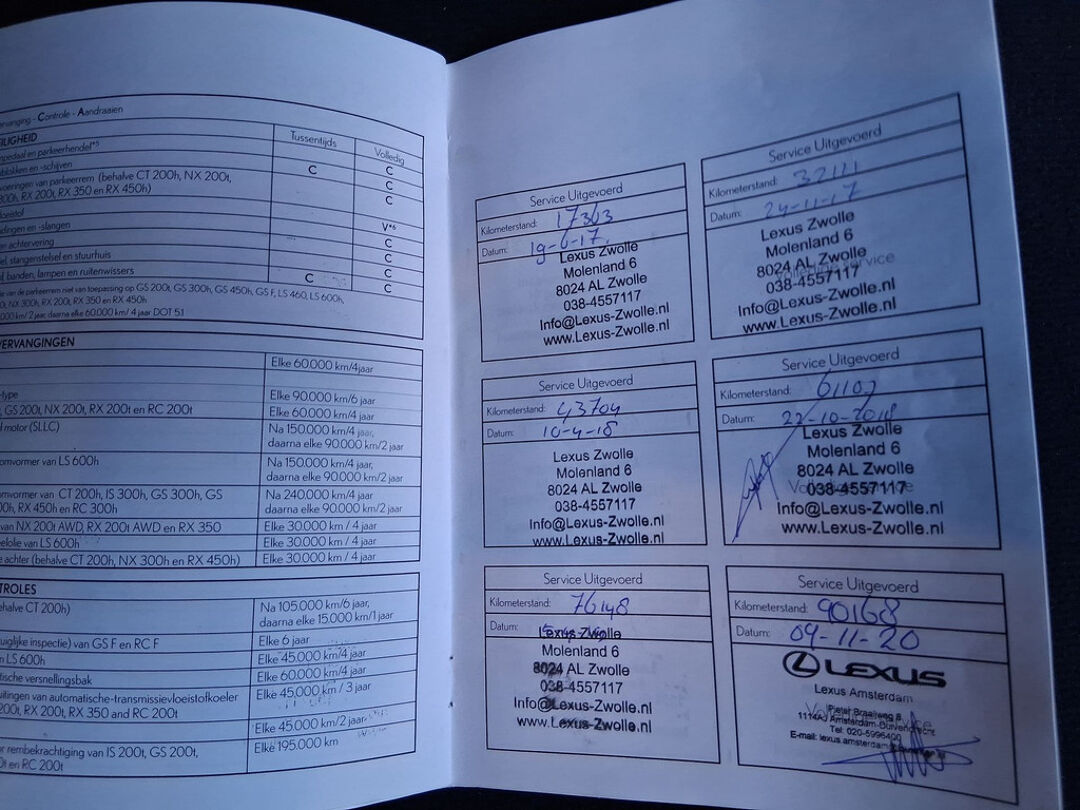 ervanging - Controle - Aandraaien
EILIGHEID
Tussentijds
Volledig
mpedaal en parkeerhendel*⁵
C
blokken en -schijven
C
C
voeringen van parkeerrem (behalve CT 200h, NX 200t,
300h, RX 200t, RX 350 en RX 450h)
C
loeistof
V*⁶
dingen en -slangen
C
en achtervering
C
el, stangenstelsel en stuurhuis
C
f, banden, lampen en ruitenwissers
C
C
e van de parkeerrem niet van toepassing op GS 200t, GS 300h, GS 450h, GS F, LS 460, LS 600h,
0t, NX 300h, RX 200t, RX 350 en RX 450h
000 km/ 2 jaar, daarna elke 60.000 km/ 4 jaar DOT 5.1
VERVANGINGEN
Elke 60.000 km/4jaar
-type
Elke 90.000 km/6 jaar
, GS 200t, NX 200t, RX 200t en RC 200t
Elke 60.000 km/4 jaar
d motor (SLLC)
Na 150.000 km/4 jaar,
daarna elke 90.000 km/2 jaar
omvormer van LS 600h
Na 150.000 km/4 jaar,
daarna elke 90.000 km/2 jaar
omvormer van CT 200h, IS 300h, GS 300h, GS
0h, RX 450h en RC 300h
Na 240.000 km/4 jaar
daarna elke 90.000 km/2 jaar
van NX 200t AWD, RX 200t AWD en RX 350
Elke 30.000 km / 4 jaar
eelolie van LS 600h
Elke 30.000 km / 4 jaar
e achter (behalve CT 200h, NX 300h en RX 450h)
Elke 30.000 km / 4 jaar
TROLES
ehalve CT 200h)
Na 105.000 km/6 jaar,
daarna elke 15.000 km/1jaar
uiglijke inspectie) van GS F en RC F
Elke 6 jaar
n LS 600h
Elke 45.000 km/4 jaar
tische versnellingsbak
Elke 60.000 km/4 jaar
uitingen van automatische-transmissievloeistofkoeler
200t, RX 200t, RX 350 and RC 200t
Elke 45.000 km / 3 jaar
Elke 45.000 km/2 jaar
or rembekrachtiging van IS 200t, GS 200t,
0t en RC 200t
Elke 195.000 km
Service Uitgevoerd
Kilometerstand: 17363
Datum: 19-6-17
Lexus Zwolle
Molenland 6
8024 AL Zwolle
038-4557117
Info@Lexus-Zwolle.nl
www.Lexus-Zwolle.nl
Service Uitgevoerd
Kilometerstand: 32111
Datum: 24-11-17
Lexus Zwolle
Molenland 6
8024 AL Zwolle
038-4557117
Info@Lexus-Zwolle.nl
www.Lexus-Zwolle.nl
Service Uitgevoerd
Kilometerstand: 43704
Datum: 10-4-18
Lexus Zwolle
Molenland 6
8024 AL Zwolle
038-4557117
Info@Lexus-Zwolle.nl
www.Lexus-Zwolle.nl
Service Uitgevoerd
Kilometerstand: 61102
Datum: 22-10-2018
Lexus Zwolle
Molenland 6
8024 AL Zwolle
038-4557117
Info@Lexus-Zwolle.nl
www.Lexus-Zwolle.nl
Service Uitgevoerd
Kilometerstand: 76148
Datum:
Lexus Zwolle
Molenland 6
8024 AL Zwolle
038-4557117
Info@Lexus-Zwolle.nl
www.Lexus-Zwolle.nl
Service Uitgevoerd
Kilometerstand: 90168
Datum: 09-11-20
LEXUS
Lexus Amsterdam
Pieter Braaiweg 6
1114AJ Amsterdam-Duivendrecht
Tel: 020-5996400
E-mail: lexus.amsterdam@